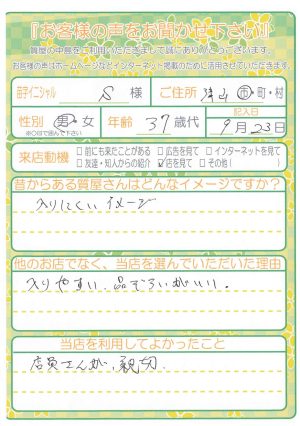 『お客様の声をお聞かせ下さい』
質屋の中島をご利用いただきまして誠にありがとうございます。
お客様の声はホームページなどインターネット掲載のために活用させていただきます。
苗字イニシャル S 様 ご住所 津山 市・町・村
性別 男・女 年齢 37歳代 記入日 9月23日
※○印で囲んで下さい
来店動機 □前にも来たことがある □広告を見て □インターネットを見て
□友達・知人からの紹介 ☑店を見て □その他( )
昔からある質屋さんはどんなイメージですか?
入りにくいイメージ
他のお店でなく、当店を選んでいただいた理由
入りやすい、品ぞろいがいい。
当店を利用してよかったこと
店員さんが、親切.